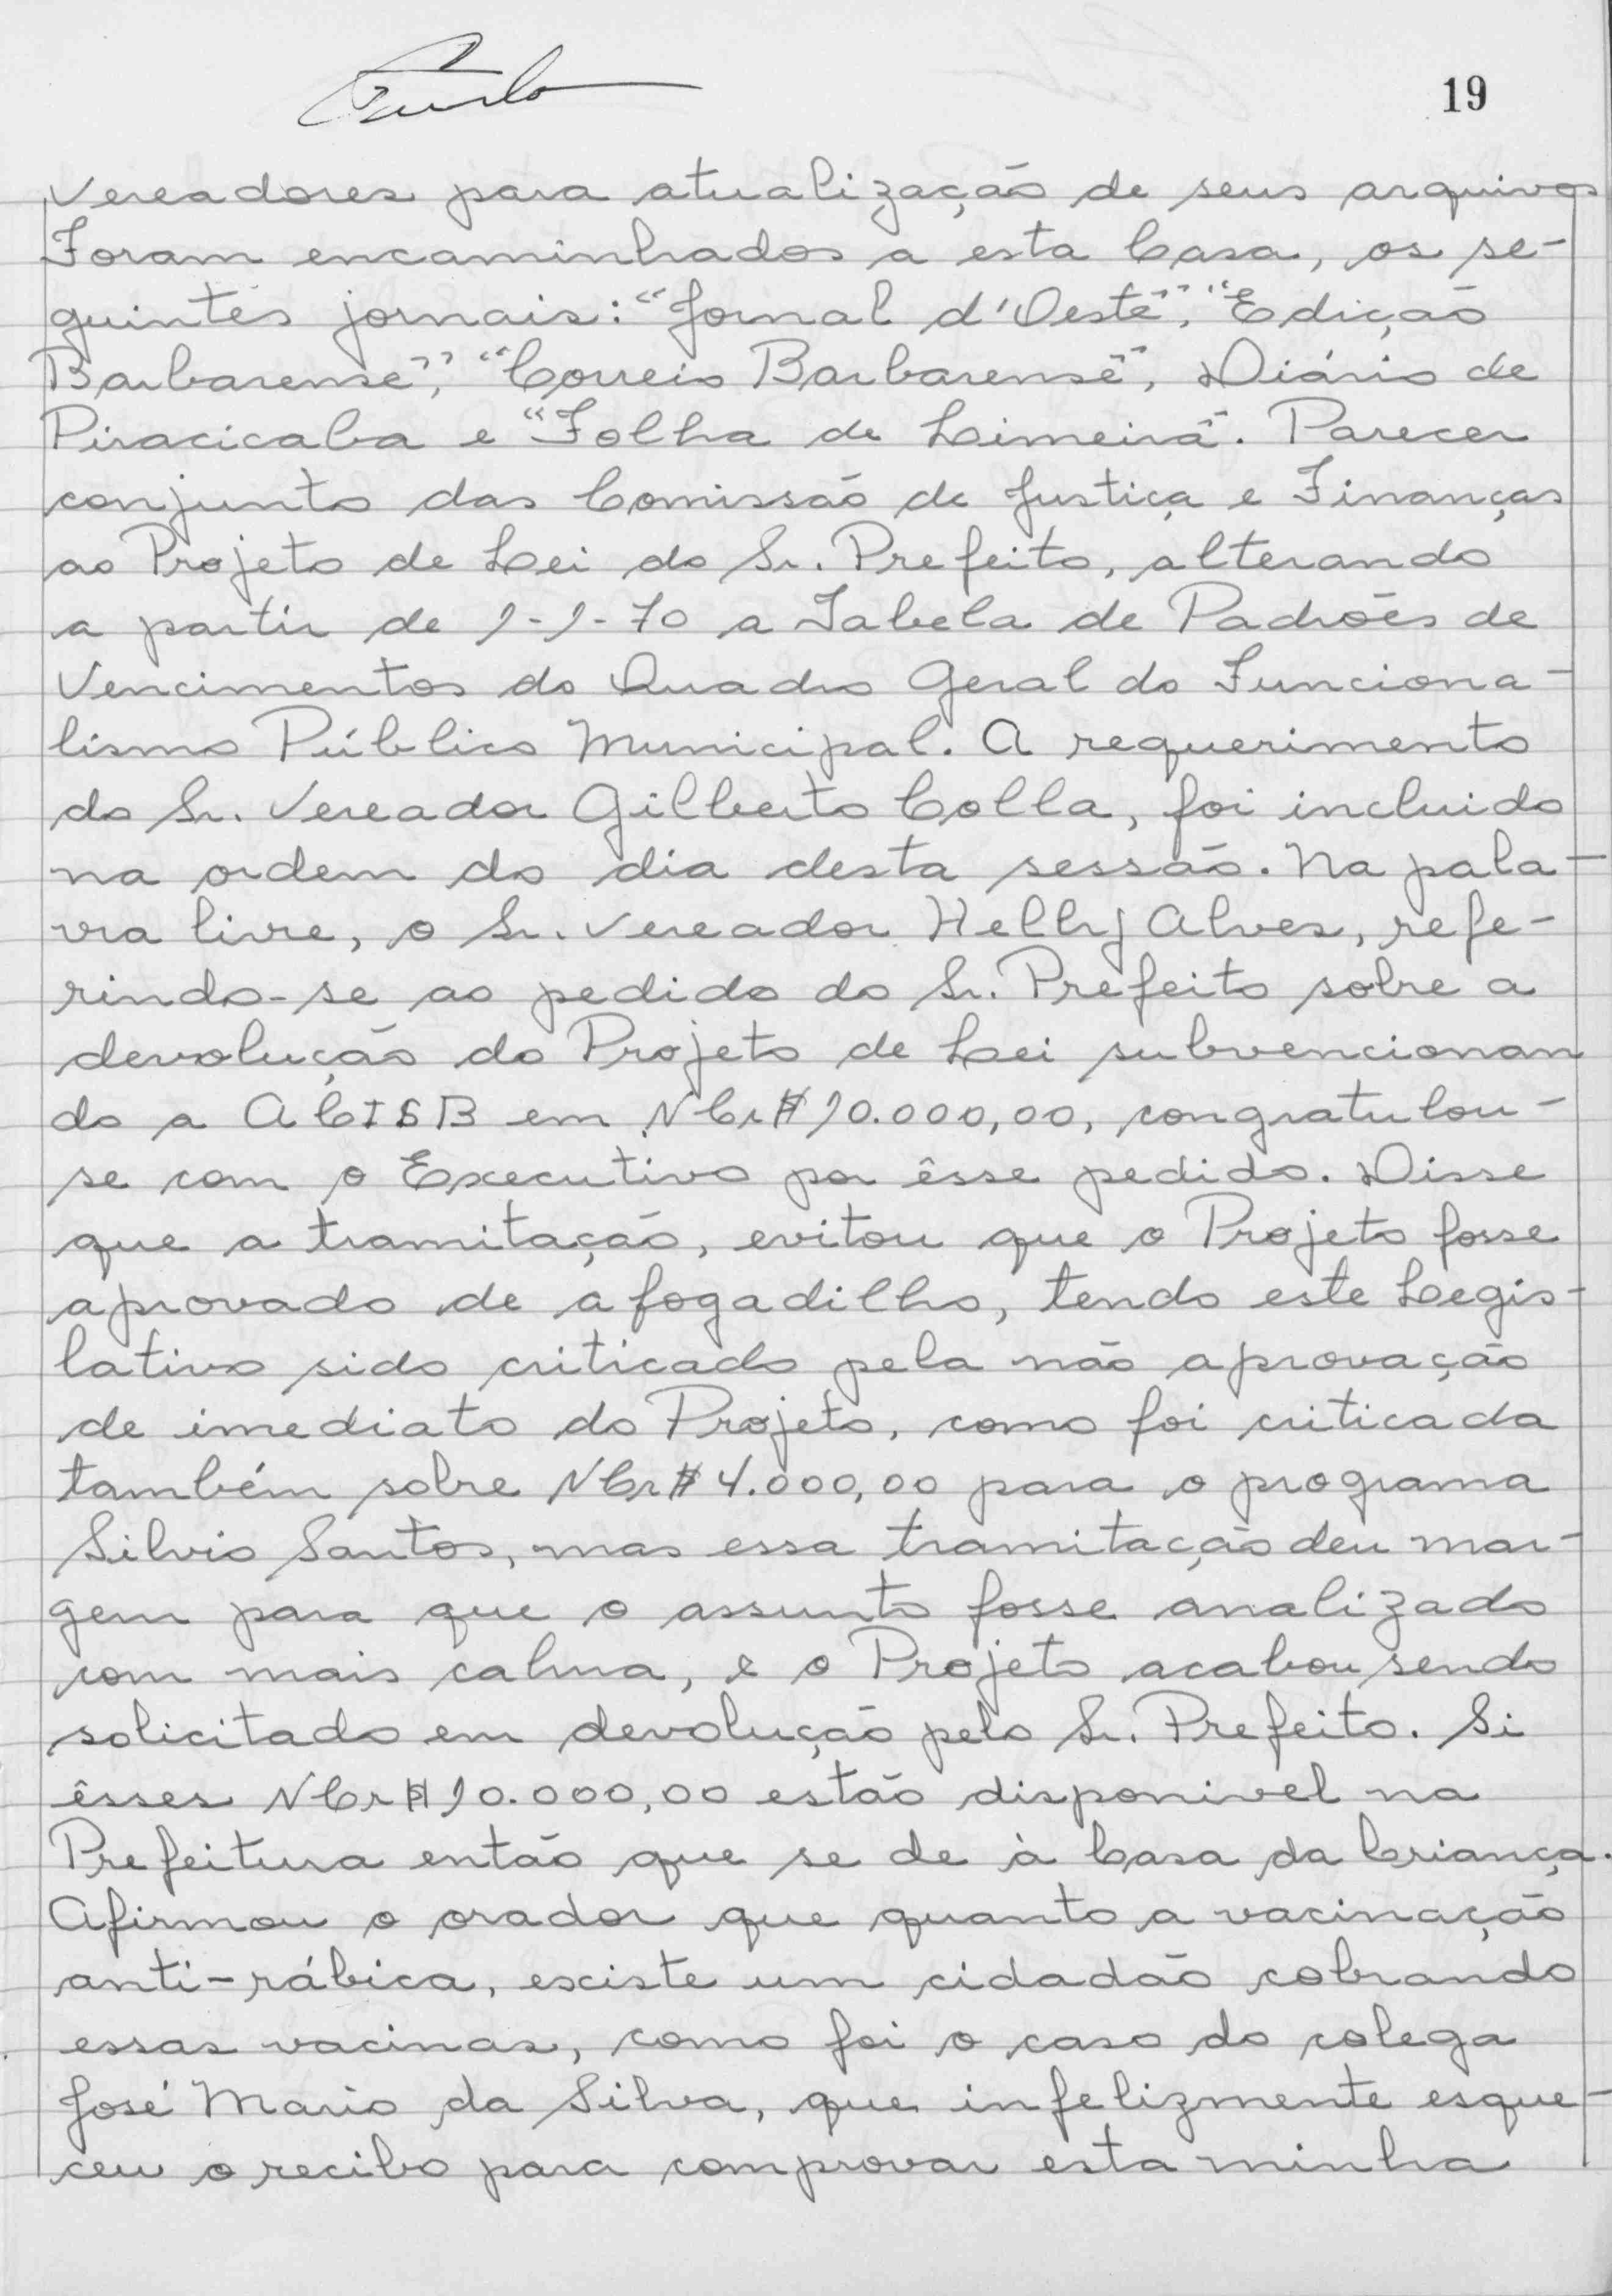 19
vereadores para atualização de seus arquivos
Foram encaminhados a esta Casa, os se-
guintes jornais: "Jornal d'Oeste", "Edição
Barbarense", "Correio Barbarense", Diário de
Piracicaba e "Folha de Limeira". Parecer
conjunto das Comissão de Justiça e Finanças
ao Projeto de Lei do Sr. Prefeito, alterando
a partir de 1-1-70 a Tabela de Padrões de
Vencimentos do Quadro Geral do Funciona-
lismo Público Municipal. A requerimento
do Sr. Vereador Gilberto Colla, foi incluido
na ordem do dia desta sessão. Na pala-
vra livre, o Sr. Vereador Helly Alves, refe-
rindo-se ao pedido do Sr. Prefeito sobre a
devolução do Projeto de Lei subvencionan
do a ACISB em NCr$10.000,00, congratulou-
se com o Executivo por êsse pedido. Disse
que a tramitação, evitou que o Projeto fosse
aprovado de afogadilho, tendo este Legis-
lativo sido criticado pela não aprovação
de imediato do Projeto, como foi criticada
também sobre NCr$4.000,00 para o programa
Silvio Santos, mas essa tramitação deu mar-
gem para que o assunto fosse analizado
com mais calma, e o Projeto acabou sendo
solicitado em devolução pelo Sr. Prefeito. Si
êsses NCr$10.000,00 estão disponivel na
Prefeitura então que se de à Casa da Criança.
Afirmou o orador que quanto a vacinação
anti-rábica, existe um cidadão cobrando
essas vacinas, como foi o caso do colega
José Mario da Silva, que infelizmente esque-
ceu o recibo para comprovar esta minha